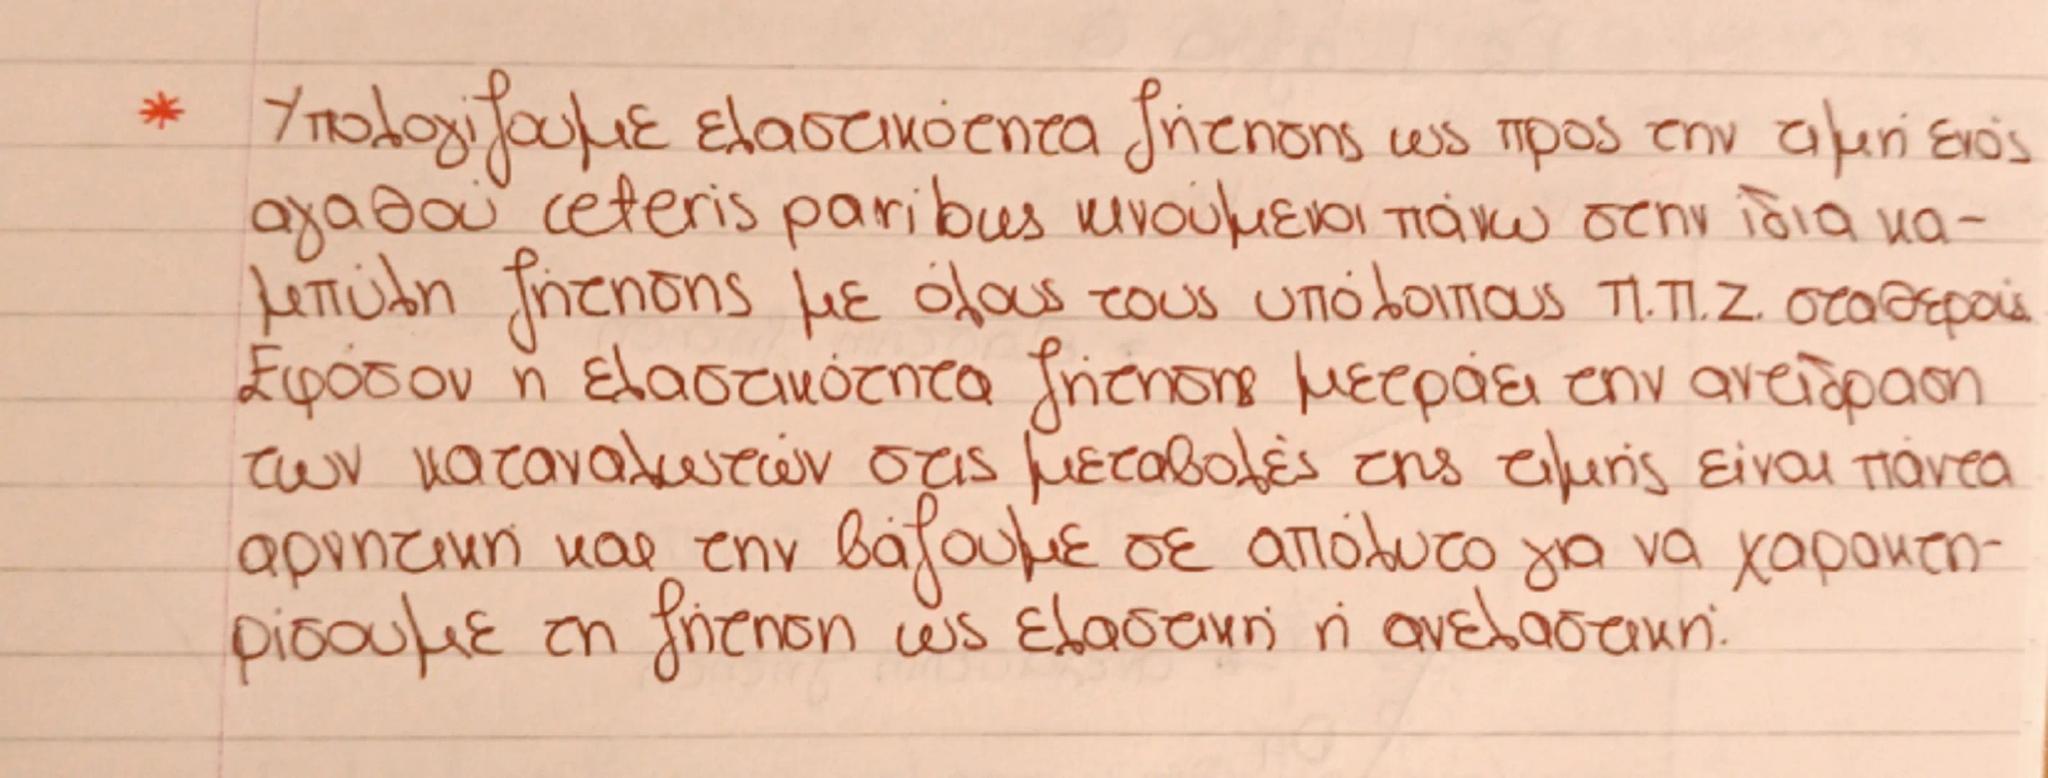 * Υπολογίζουμε ελαστικότητα ζήτησης ως προς την τιμή ενός
αγαθού ceteris paribus κινούμενοι πάνω στην ίδια κα-
μπύλη ζήτησης με όλους τους υπόλοιπους Π.Π.Ζ. σταθερούς.
Εφόσον η ελαστικότητα ζήτησης μετράει την αντίδραση
των καταναλωτών στις μεταβολές της τιμής είναι πάντα
αρνητική και την βάζουμε σε απόλυτο για να χαρακτη-
ρίσουμε τη ζήτηση ως ελαστική ή ανελαστική.